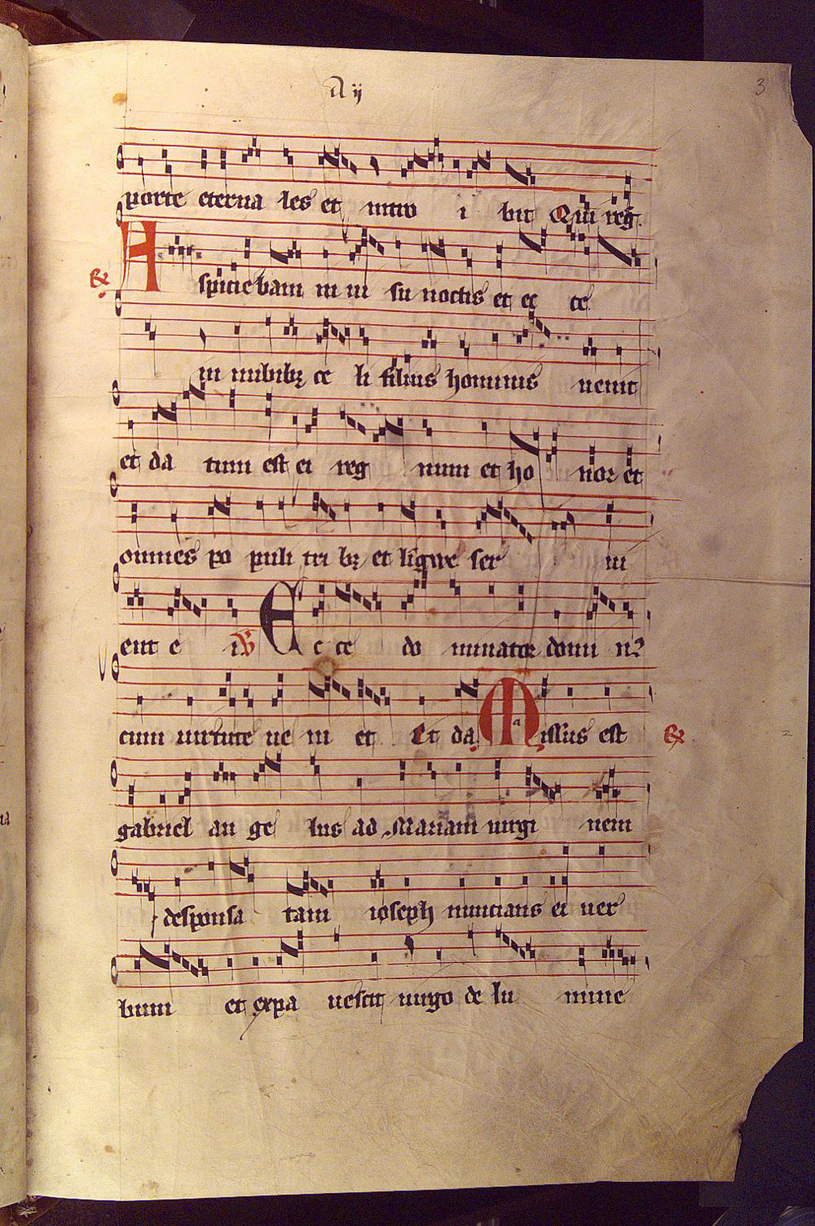 A ij
3
porte eterna les et intro i bit Qui reg.
℟ Aspicie bam in ui su noctis et ec ce
in nubibꝫ ce li filius hominis uenit
et da tum est ei reg num et ho nor et
omnes po puli tri bꝫ et ligwe ser ui
ent e i ℣ Ec ce do minator domi nꝰ
cum uirtute ue ni et Et da. Missus est ℟
gabriel an ge lus ad Mariam uirgi nem
desponsa tam ioseph nuncians ei uer
bum et expa uescit uirgo de lu mine